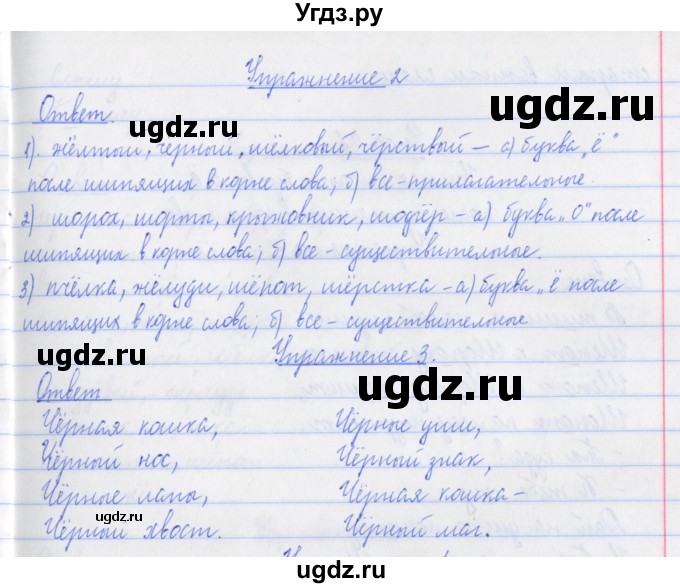 Угдз.ру
Упражнение 2
Ответ.
1). жёлтый, чёрный, шёлковый, чёрствый – а) буква „ё“
после шипящих в корне слова; б) все - прилагательные.
2) шорох, шорты, крыжовник, шофёр – а) буква „о“ после
шипящих в корне слова; б) все - существительные.
3) пчёлка, жёлуди, шёпот, шёрстка – а) буква „ё после
шипящих в корне слова; б) все - существительные
Упражнение 3.
Ответ
Чёрная кошка,
Чёрный нос,
Чёрные лапы,
Чёрный хвост.
Чёрные уши,
Чёрный знак,
Чёрная кошка –
Чёрный маг.
ugdz.ru
ugdz.ru
ugdz.ru
ugdz.ru
ugdz.ru
ugdz.ru
ugdz.ru
ugdz.ru